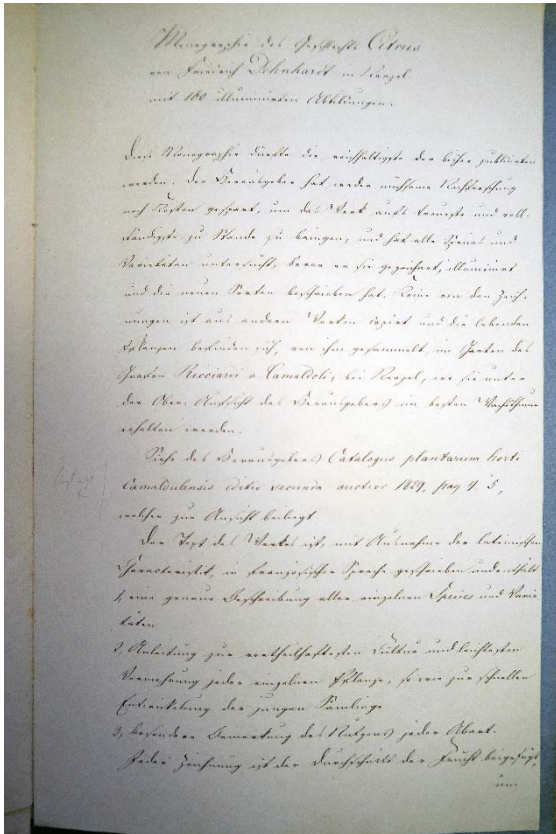 Monographie des Geschlechts Citrus
von Friedrich Dehnhardt in Neapel
mit 160 illuminirten Abbildungen.
Diese Monographie dürfte die reichhaltigste der bisher publicirten
werden. Der Herausgeber hat weder mühsame Nachforschung
noch Kosten gespart, um das Werk aufs treueste und voll-
ständigste zu Stande zu bringen, und hat alle Species und
Varietäten untersucht, bevor er sie gezeichnet, illuminirt
und die neuen Sorten beschrieben hat. Keine von den Zeich-
nungen ist aus andern Werken copirt und die lebenden
Pflanzen befinden sich, von ihm gesammelt, im Garten des
Grafen Ricciardi a Camaldoli, bei Neapel, wo sie unter
der Ober-Aufsicht des Herausgebers im besten Wachsthume
erhalten werden.
Siehe des Herausgebers Catalogus plantarum horti
Camaldulensis editio secunda auctior 1829, pag 4. 5,
welcher zur Ansicht beiliegt
Der Text des Werkes ist, mit Ausnahme der lateinischen
Characteristik, in französischer Sprache geschrieben und enthält
1, eine genaue Beschreibung aller einzelnen Species und Varie-
täten
2. Anleitung zur vortheilhaftesten Cultur und leichtesten
Vermehrung jeder einzelnen Pflanze, so wie zur schnellen
Entwickelung der jungen Sämlinge
3, besondere Bemerkung des Nutzens jeder Abart.
Jeder Zeichnung ist der Durchschnitt der Frucht beigefügt,